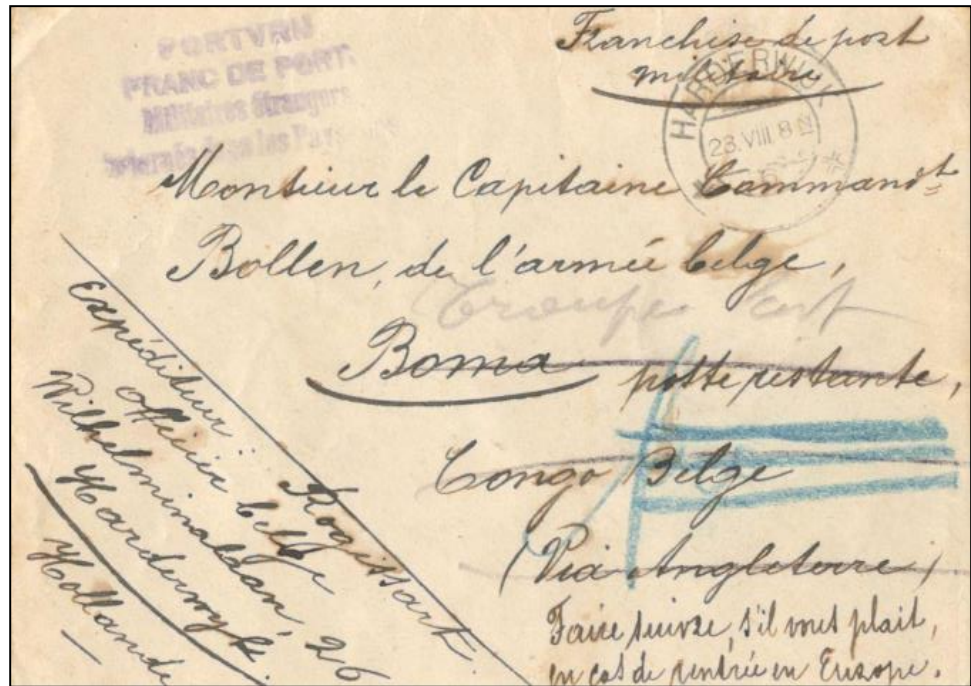 PORTVRIJ
FRANC DE PORT.
Militaires étrangers
internés dans les Pays-Bas
Franchise de port
militaire
HARDERWIJK
28.VIII.8
Monsieur le Capitaine Commandt
Bollen, de l'armée belge,
Troupes
Boma poste restante,
Congo Belge
(Via Angleterre)
Faire suivre, s'il vous plait,
en cas de rentrée en Europe.
Expéditeur: Rogissart.
officier belge
Wilhelminalaan, 26
Harderwyk
Hollande